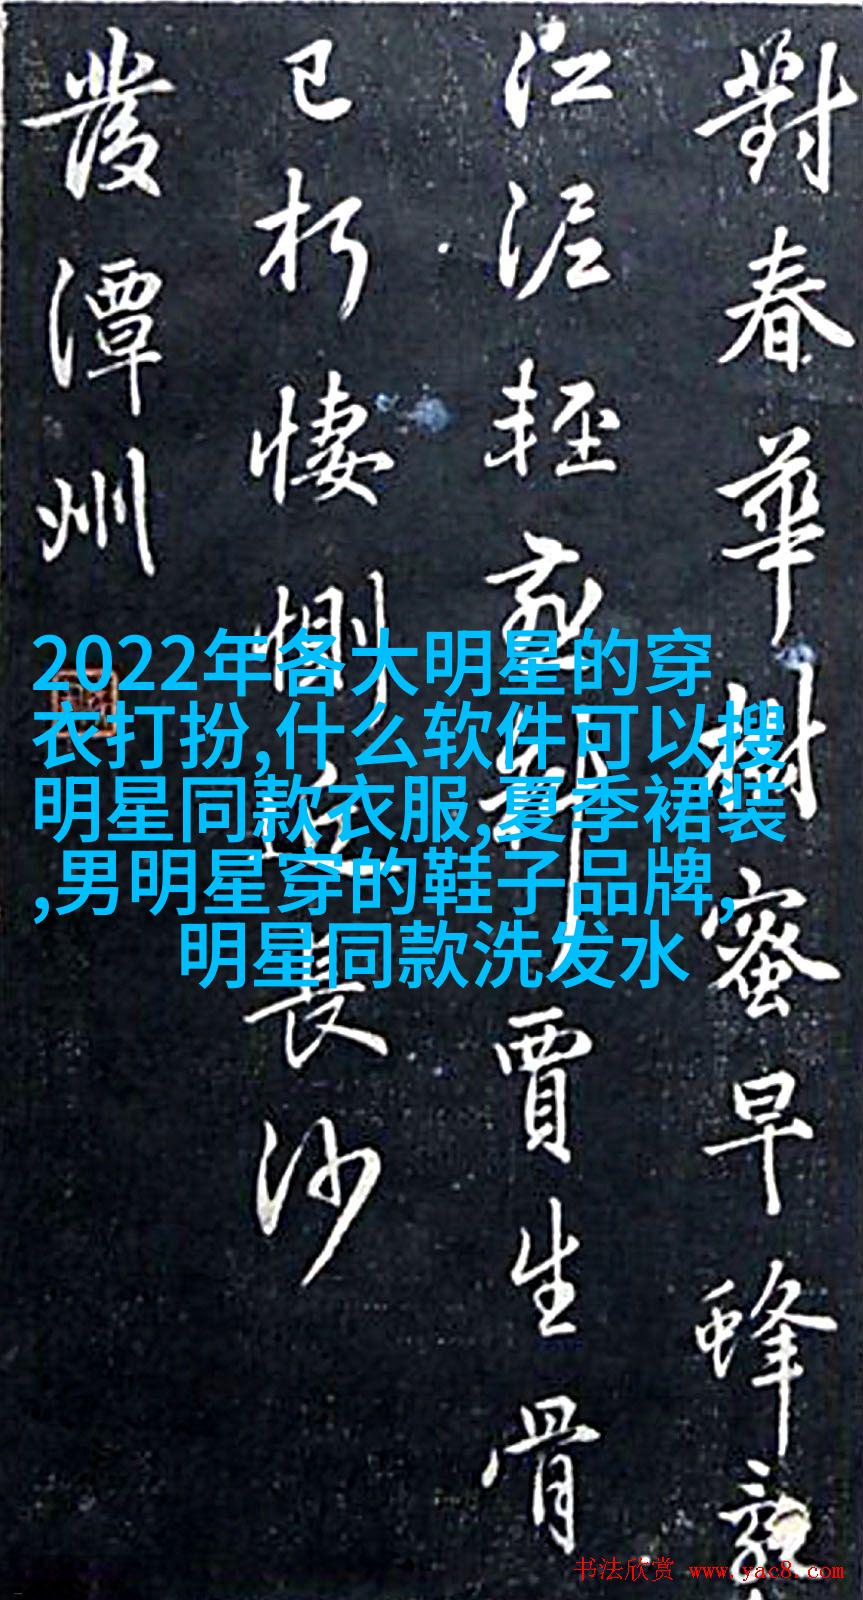 對春華樹蜜早蜂亂
江泥輕燕斜賈生骨
已朽悽惻近長沙
發潭州
2022年各大明星的穿
衣打扮,什么软件可以搜
明星同款衣服,夏季裙装
,男明星穿的鞋子品牌,
明星同款洗发水
书法欣赏 www.yac8.com